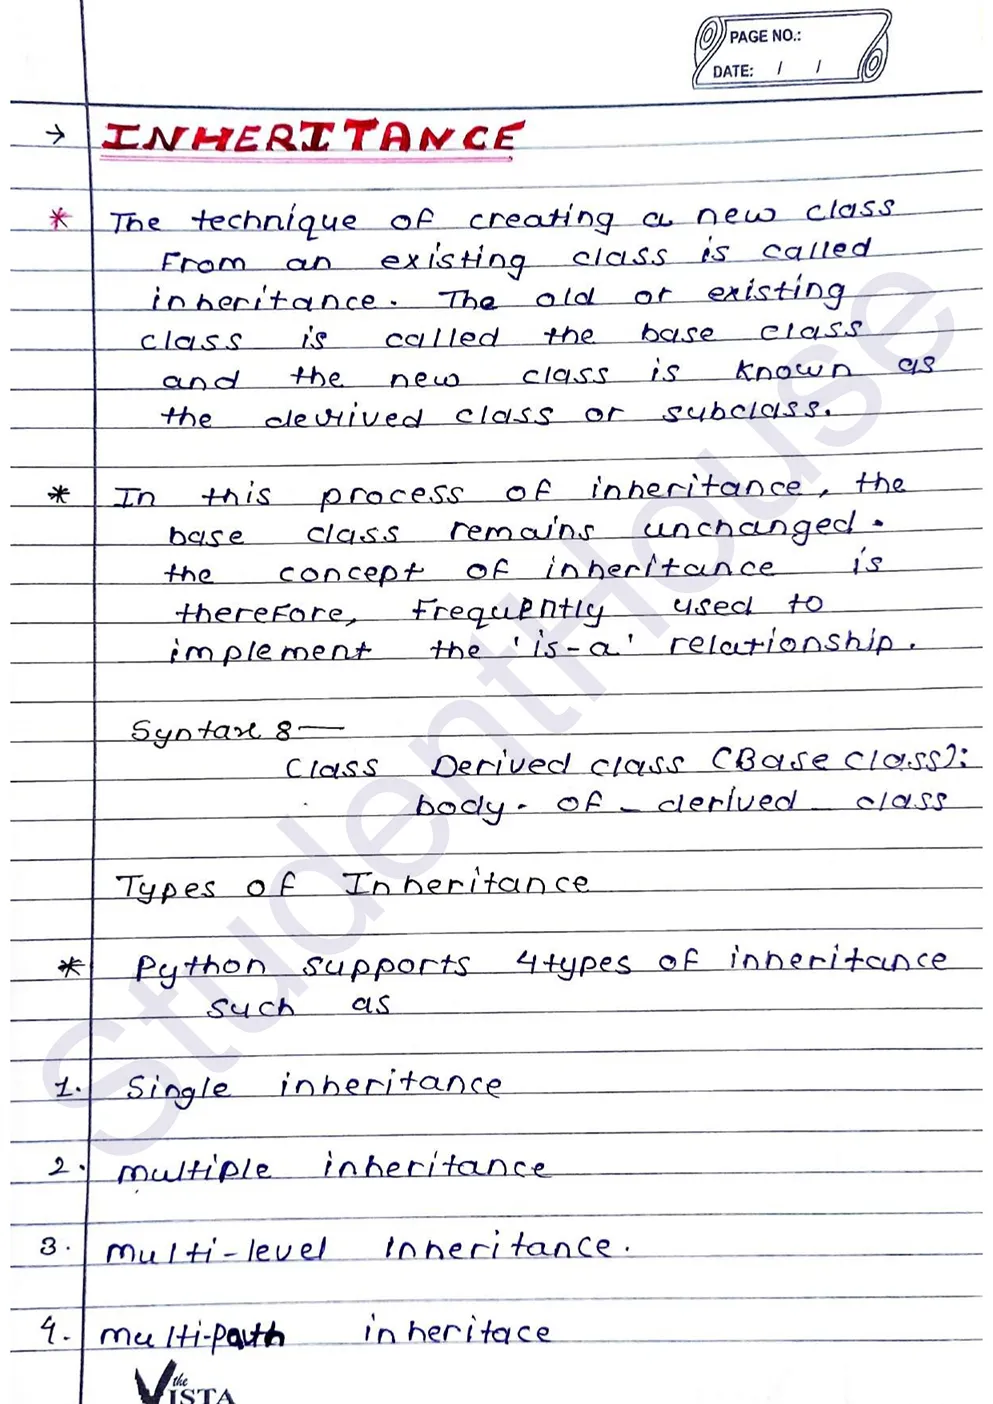 PAGE NO.:
DATE: / /
→ INHERITANCE
* The technique of creating a new class
From an existing class is called
inheritance. The old or existing
class is called the base class
and the new class is known as
the derived class or subclass.
* In this process of inheritance, the
base class remains unchanged.
the concept of inheritance is
therefore, frequently used to
implement the 'is-a' relationship.
Syntax 8—
Class Derived class (Base class):
body - of - derived - class
Types of Inheritance
* Python supports 4types of inheritance
such as
1. Single inheritance
2. multiple inheritance
3. multi-level Inheritance.
4. multi-Path inheritace
the
VISTA
StudentHouse